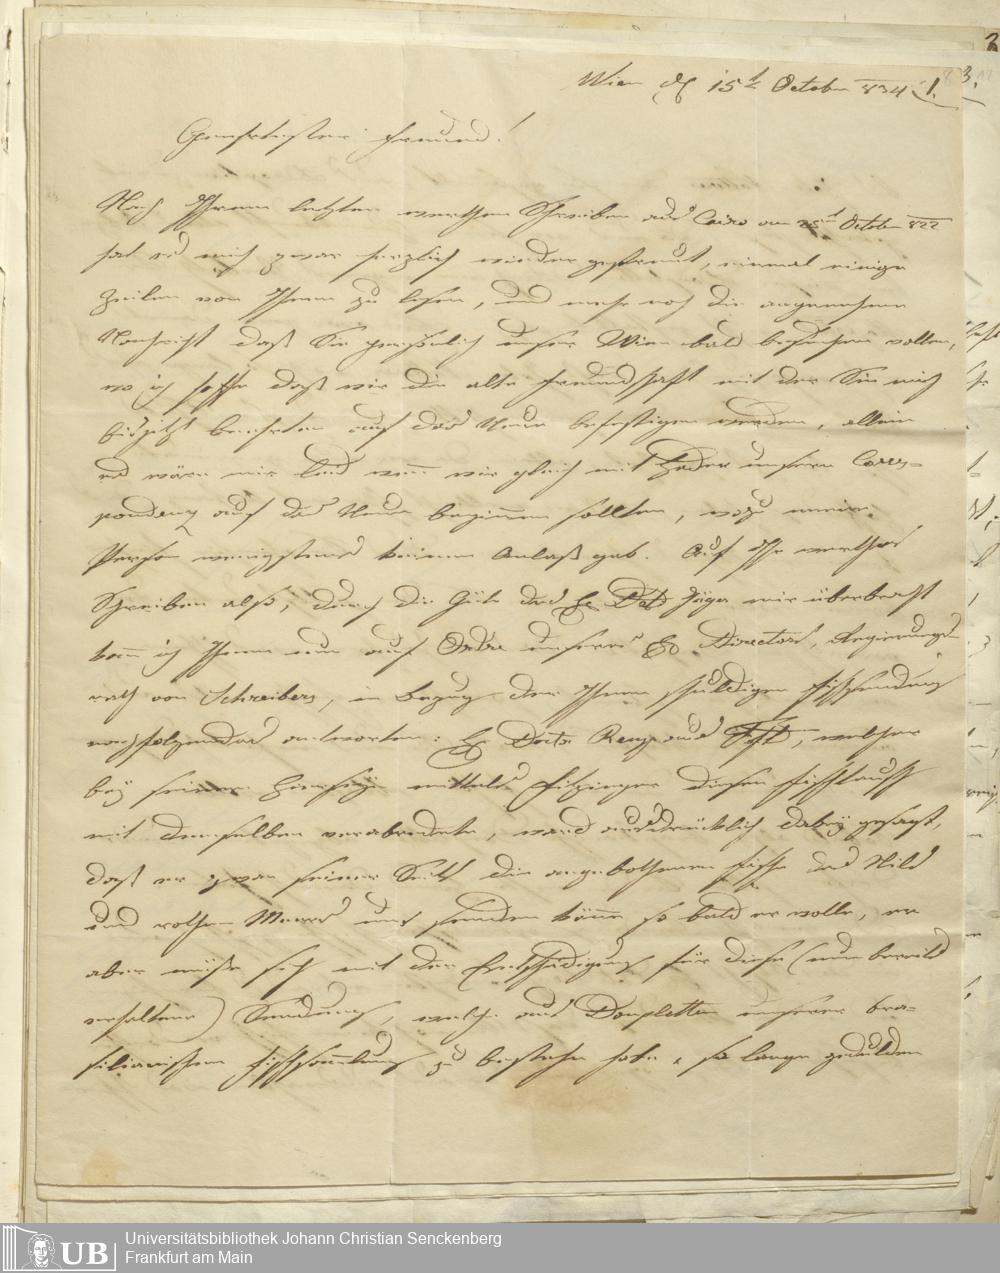 Wien d 15t October 834. 1.
3.
Geehrtester Freund!
Nach Ihrem letzten werthen Schreiben aus Cairo am 25t October 822
hat es mich zwar herzlich wieder gefreut, einmal einige
Zeilen von Ihnen zu lesen, und mehr noch die angenehme
Nachricht daß Sie persönlich unser Wien bald besuchen wollen,
wo ich hoffe daß wir die alte Freundschaft mit der Sie mich
bis jetzt beehrten auf das Neue befestigen werden, allein
es wäre mir leid wenn wir gleich mit unsere Corres-
pondenz auf das Neue beginnen sollten, wozu meine
Person wenigstens keinen Anlaß gab. Auf Ihr werthes
Schreiben also, durch die Güte des H Dotr Jäger mir überbracht
kann ich Ihnen nun auf Ordre unseres H Directors, Regierungs-
rath von Schreibers, in Bezug der Ihnen schuldigen Fischsendung
nachfolgendes antworten: H Doctor aus , welcher
bey seinem Hierseyn mittels Fitzinger diesen Fischtausch
mit demselben verabredete, ward ausdrücklich dabey gesagt,
daß er zwar seiner Seits die angebothenen Fische des Nils
und rothen Meers uns senden könne so bald er wolle, er
aber müße sich mit der Entschädigung für diese (nun bereits
erhaltene) Sendung, welche aus Doupletten unserer bra-
silianischen Fischsammlung zu bestehen habe, so lange gedulden
UB Universitätsbibliothek Johann Christian Senckenberg
Frankfurt am Main